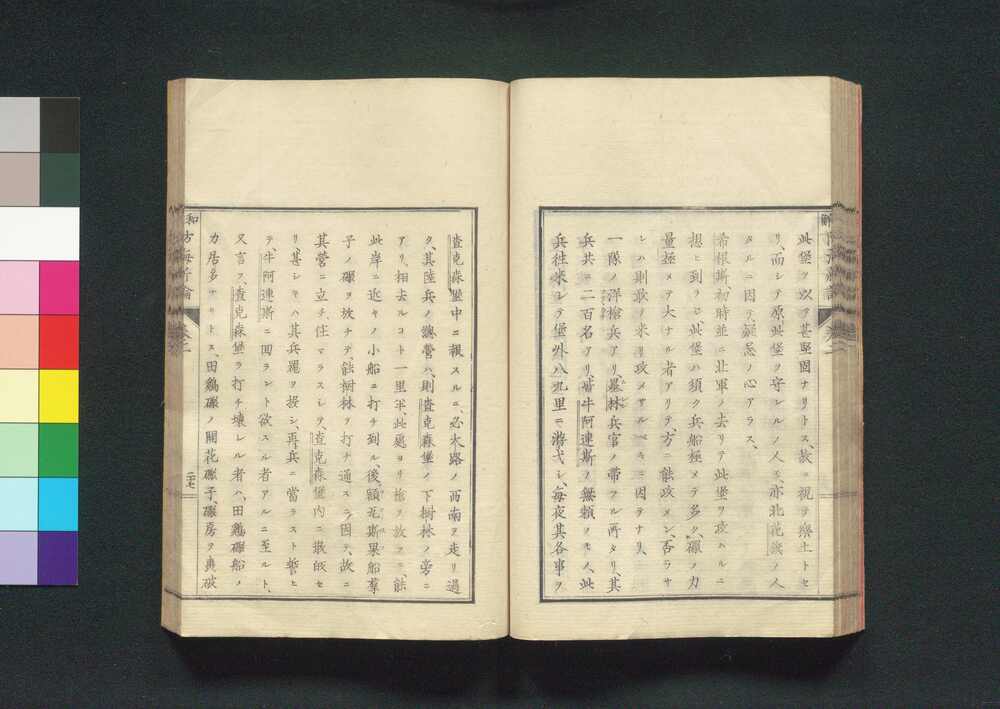 此堡ヲ以テ甚堅固ナリトス、故ニ視テ樂土トセ
リ、而シテ原此堡ヲ守レルノ人モ、亦北花旗ノ人
タルニ因テ、疑忌ノ心アラス、
希根斯、初時並ニ北軍ノ去リテ此堡ヲ攻ハルニ
想ヒ到ラ此堡ハ須ク兵船極メテ多ク、礮ノ力
量極メテ大ナル者アリテ、方ニ能攻メン、否ラサ
レハ則敵ノ来リ攻メサルベキニ因テナリ、
一隊ノ洋槍兵アリ、墨林兵官ノ帶フル所タリ、其
兵共ニ二百名アリ、皆牛阿連斯ノ無頼ノモノ人此
兵往来シテ堡外八九里ニ游弋シ、毎夜其各事ヲ
查克森堡中ニ報スルニ、必大路ノ西南ヲ走リ過
ク、其陸兵ノ總營ハ、則查克森堡ノ下樹林ノ旁ニ
アリ、相去ルコト一里半、此處ヨリ槍ヲ放ツニ、能
此岸ニ近キノ小船ニ打チ到ル、後、顧瓦斯果船羣
子ノ礮ヲ放チテ、能樹林ヲ打チ通スニ因テ、故ニ
其營ニ立チ住マラスシテ、查克森堡内ニ撤皈セ
リ、甚シキハ其兵羅ヲ授シ、再兵ニ當ラスト誓ヒ
テ、牛阿連斯ニ回ラント欲スル者アルニ至ル、
又言フ、查克森堡ヲ打チ壊レル者ハ、田鷄礮船ノ
力居多ナリトス、田鷄礮ノ開花礮子、礮房ヲ爽破
卷二
二十七